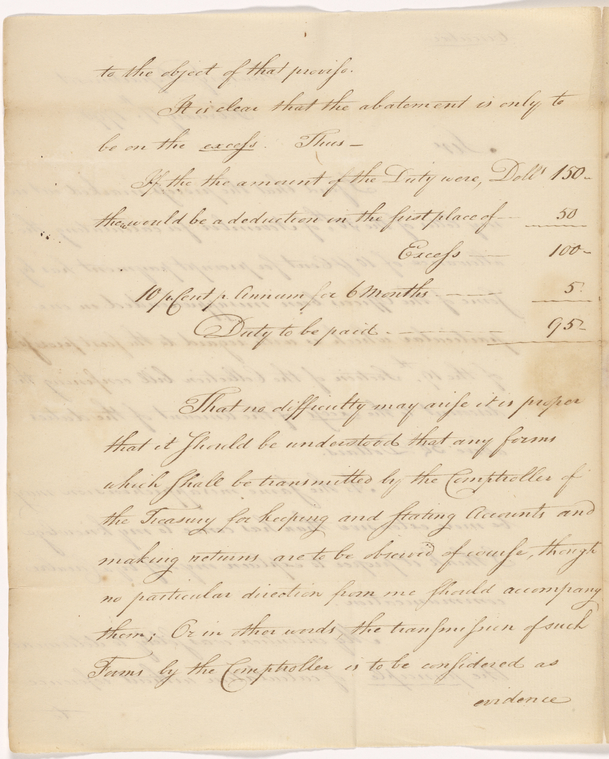 to the object of that proviso.
It is clear that the abatement is only to
be on the excess. Thus—
If the the amount of the Duty were, Doll.s 150-
the would be a deduction in the first place of — 50
Excess — 100-
10 p Cent p Annum for 6 Months — 5-
Duty to be paid — 95-
That no difficulty may arise it is proper
that it should be understood that any forms
which shall be transmitted by the Comptroller of
the Treasury for keeping and stating Accounts and
making returns are to be observ'd of course, though
no particular direction from me should accompany
them; Or in other words the transmission of such
Forms by the Comptroller is to be considered as
evidence